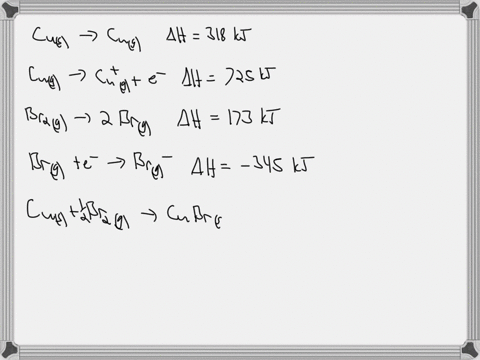 Cu(s) → Cu(g) ΔH = 318 kJ
Cu(g) → Cu⁺(g) + e⁻ ΔH = 725 kJ
Br₂(g) → 2 Br(g) ΔH = 173 kJ
Br(g) + e⁻ → Br(g)⁻ ΔH = -345 kJ
Cu(s) + ½Br₂(g) → CuBr(s